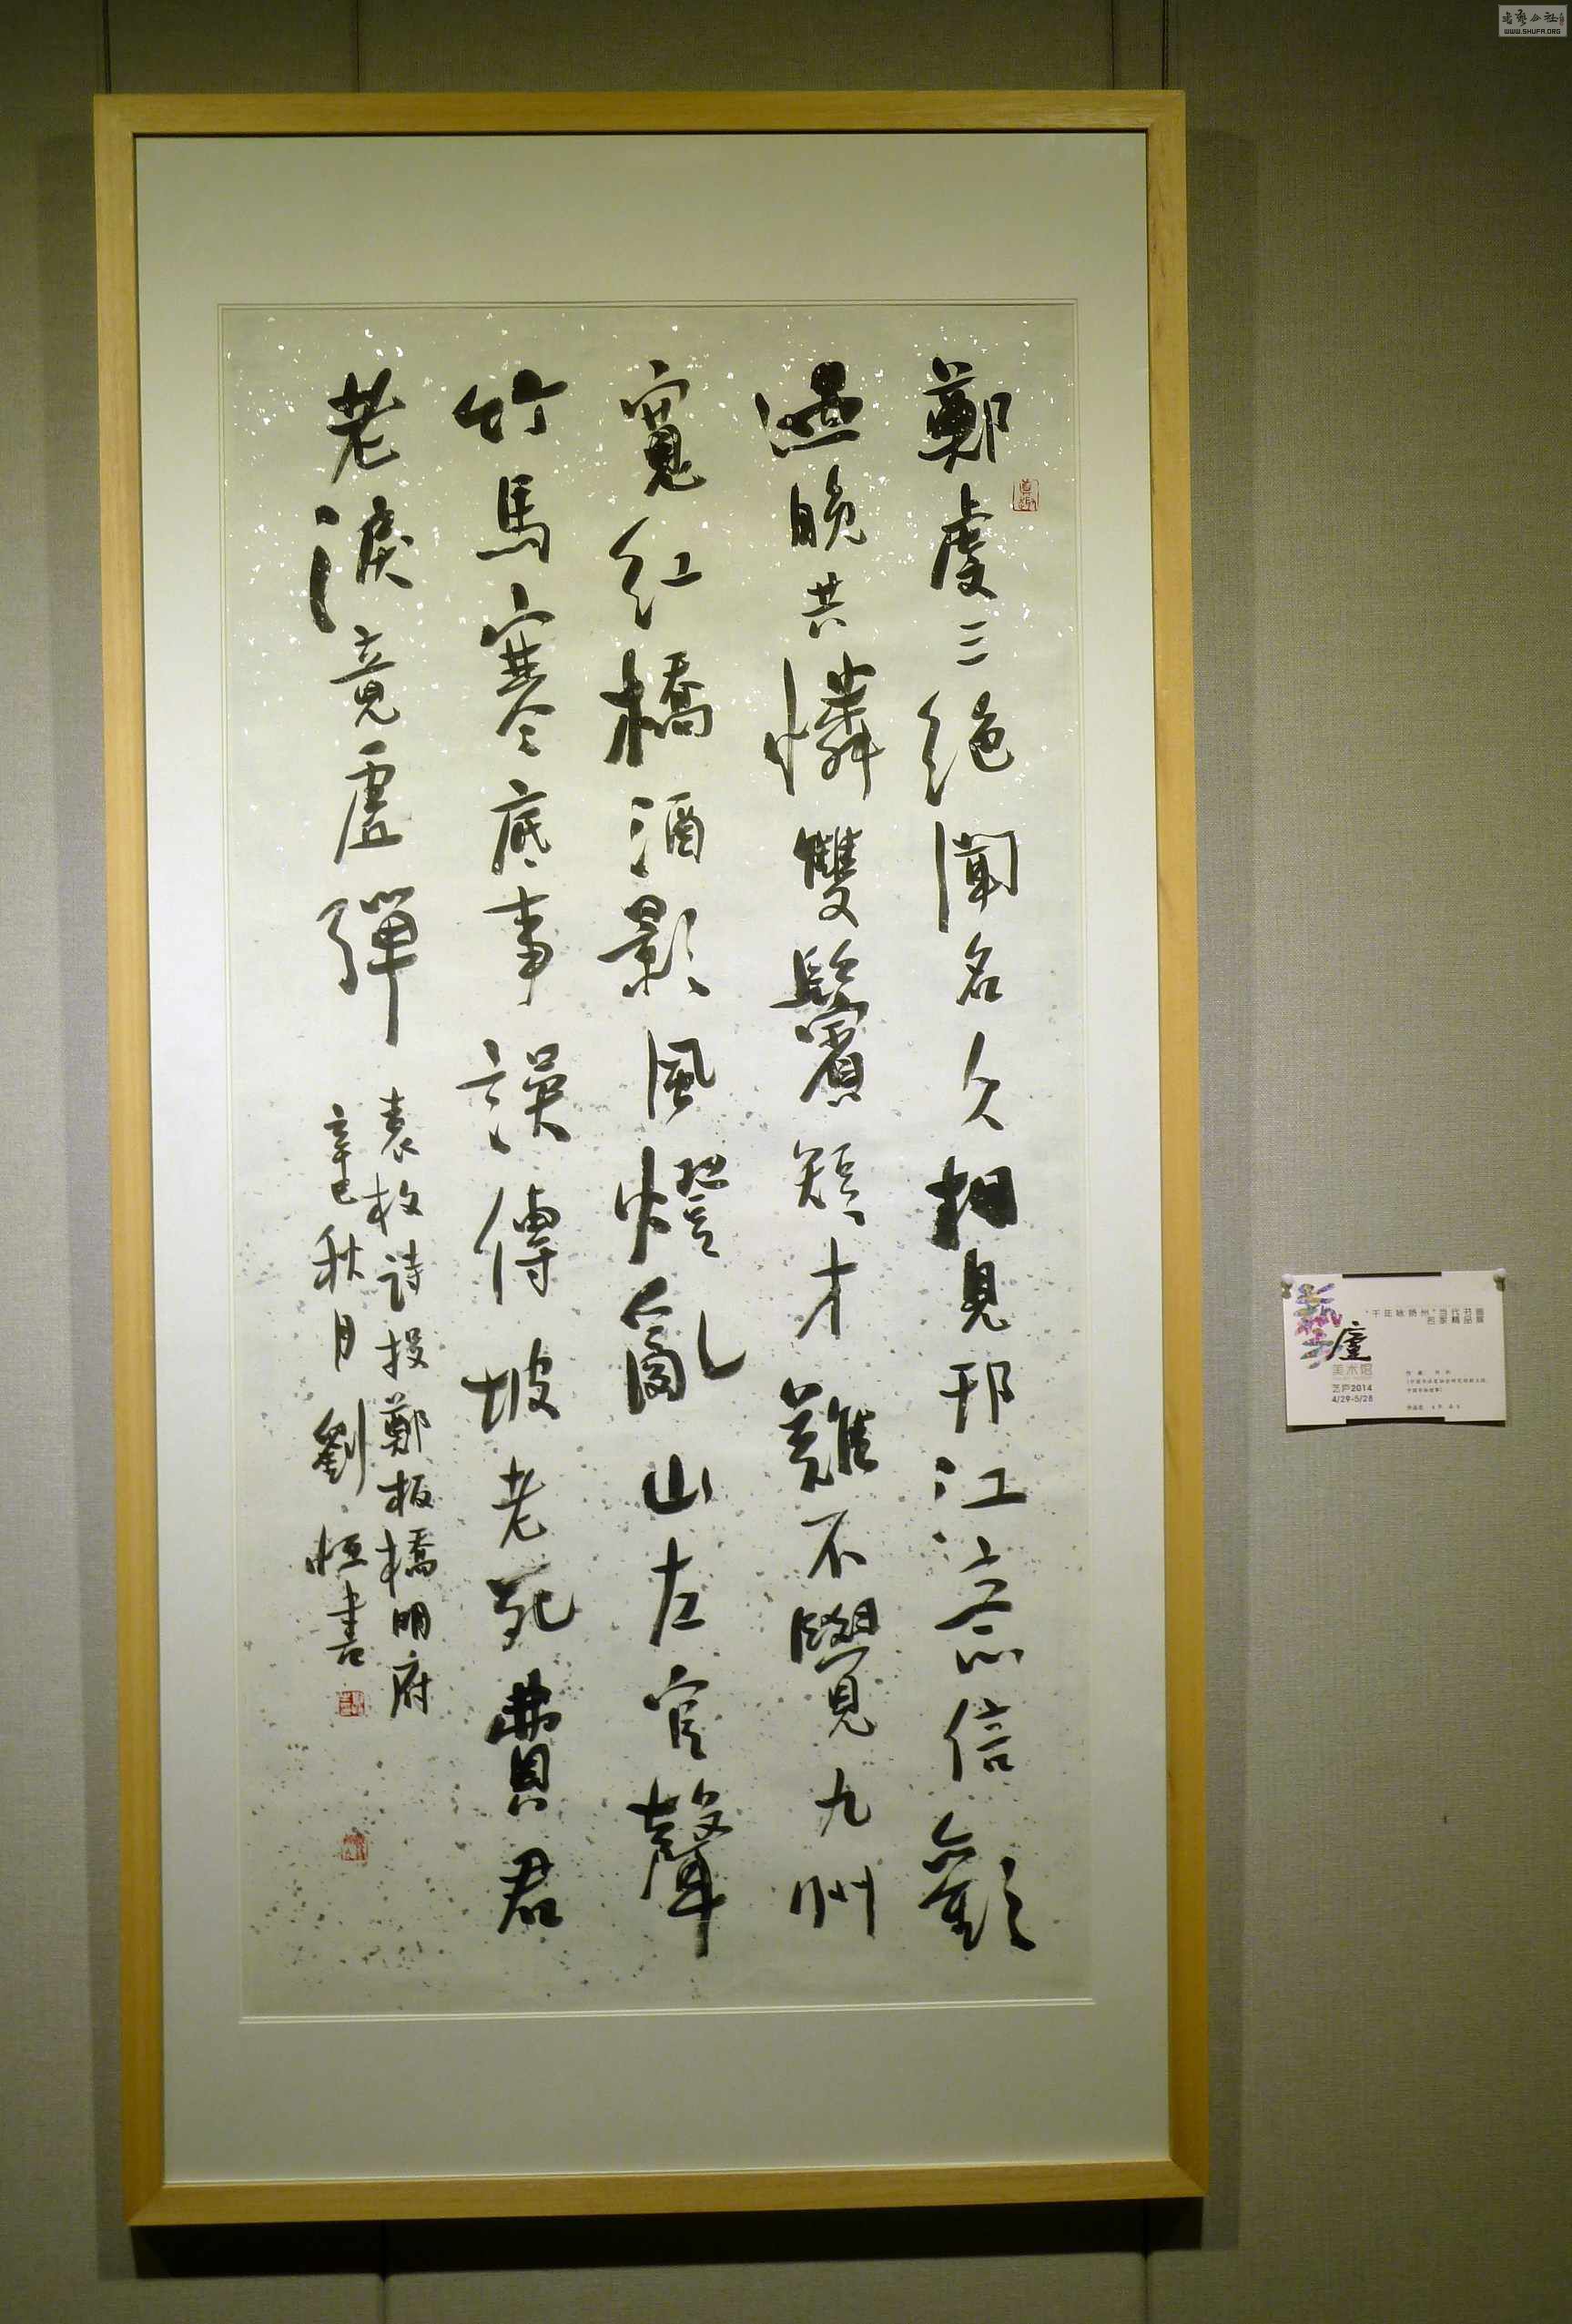 鄭虔三絕聞名久相見邗江意倍歡
遇晚共憐雙鬢短才難不覺九州
寬紅橋酒影風燈亂山左官聲
竹馬寒底事誤傳坡老死費君
老淚竟虛彈
袁枚詩投鄭板橋明府
辛巳秋月劉恒書
"千年咏扬州"当代书画
名家精品展
藝
廬
美术馆
艺庐2014
4/29-5/28
WWW.SHUFA.ORG